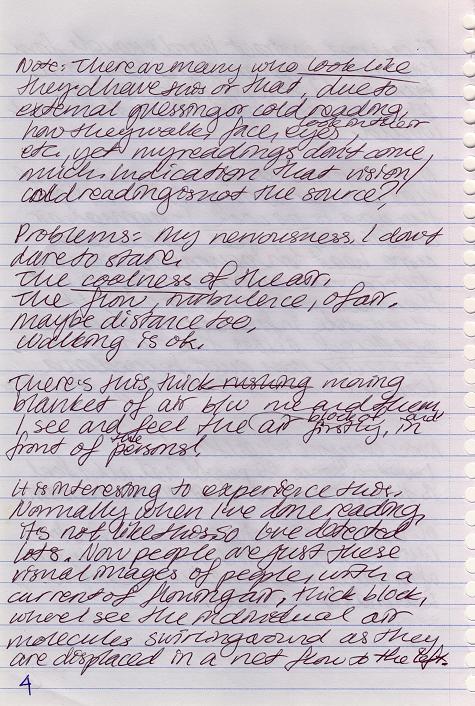 Note: There are many who look like
they'd have this or that, due to
external guessing or cold reading,
how they walk, face, eyes, look in their
etc, yet my readings don't come,
much indication that vision/
cold reading is not the source!

Problems: My nervousness, I don't
dare to stare.
The coolness of the air.
The flow, turbulence, of air.
maybe distance too,
walking is ok.

There's this thick rushing moving
blanket of air b/w me and them
I see and feel the air block of firstly, and in
front of the person!

It is interesting to experience this.
Normally when I've done reading,
it's not like this, so I've detected
lots. Now people are just these
visual images of people, with a
current of flowing air, thick block,
where I see the individual air
molecules swirling around as they
are displaced in a net flow to the left.
4